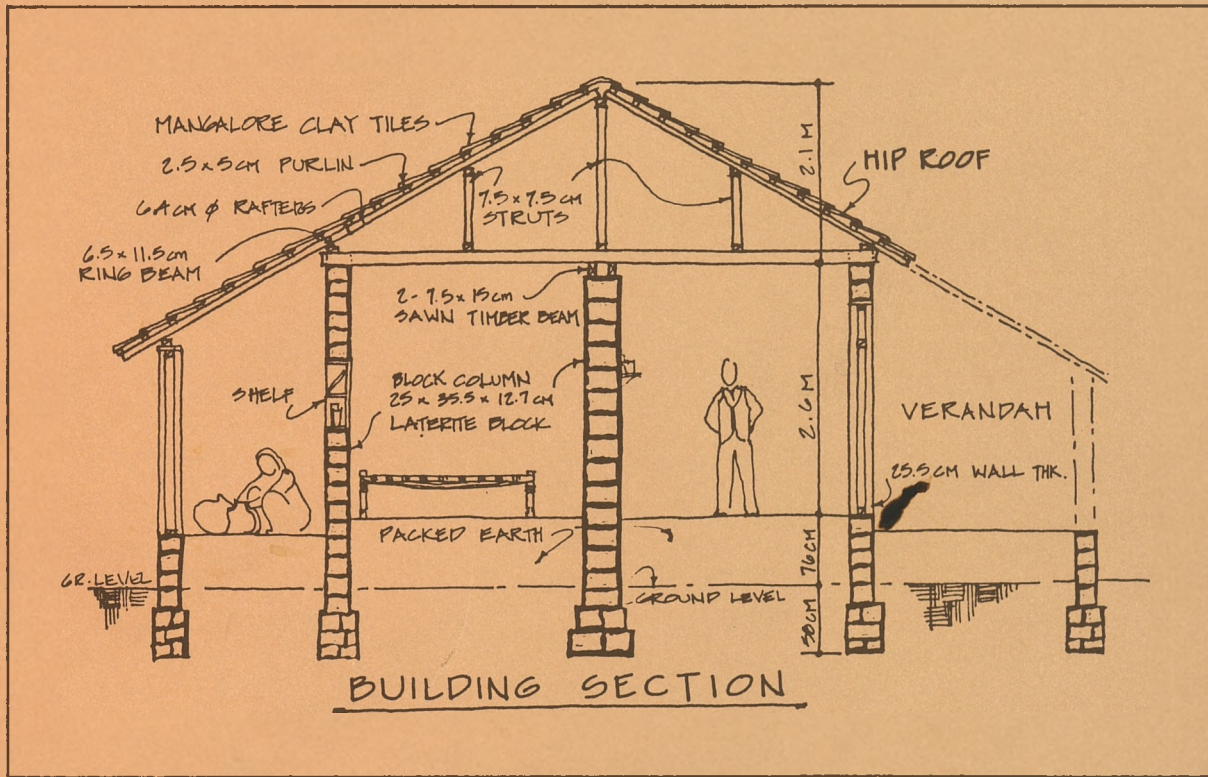 MANGALORE CLAY TILES
2.5 x 5 CM PURLIN
6.4 CM ϕ RAFTERS
6.5 x 11.5 cm
RING BEAM
7.5 x 7.5 CM
STRUTS
2.1 M
HIP ROOF
2- 7.5 x 15 cm
SAWN TIMBER BEAM
SHELF
BLOCK COLUMN
25 x 35.5 x 12.7 CM
LATERITE BLOCK
2.6 M
VERANDAH
25.5 CM WALL THK.
PACKED EARTH
76 CM
GR. LEVEL
GROUND LEVEL
BUILDING SECTION